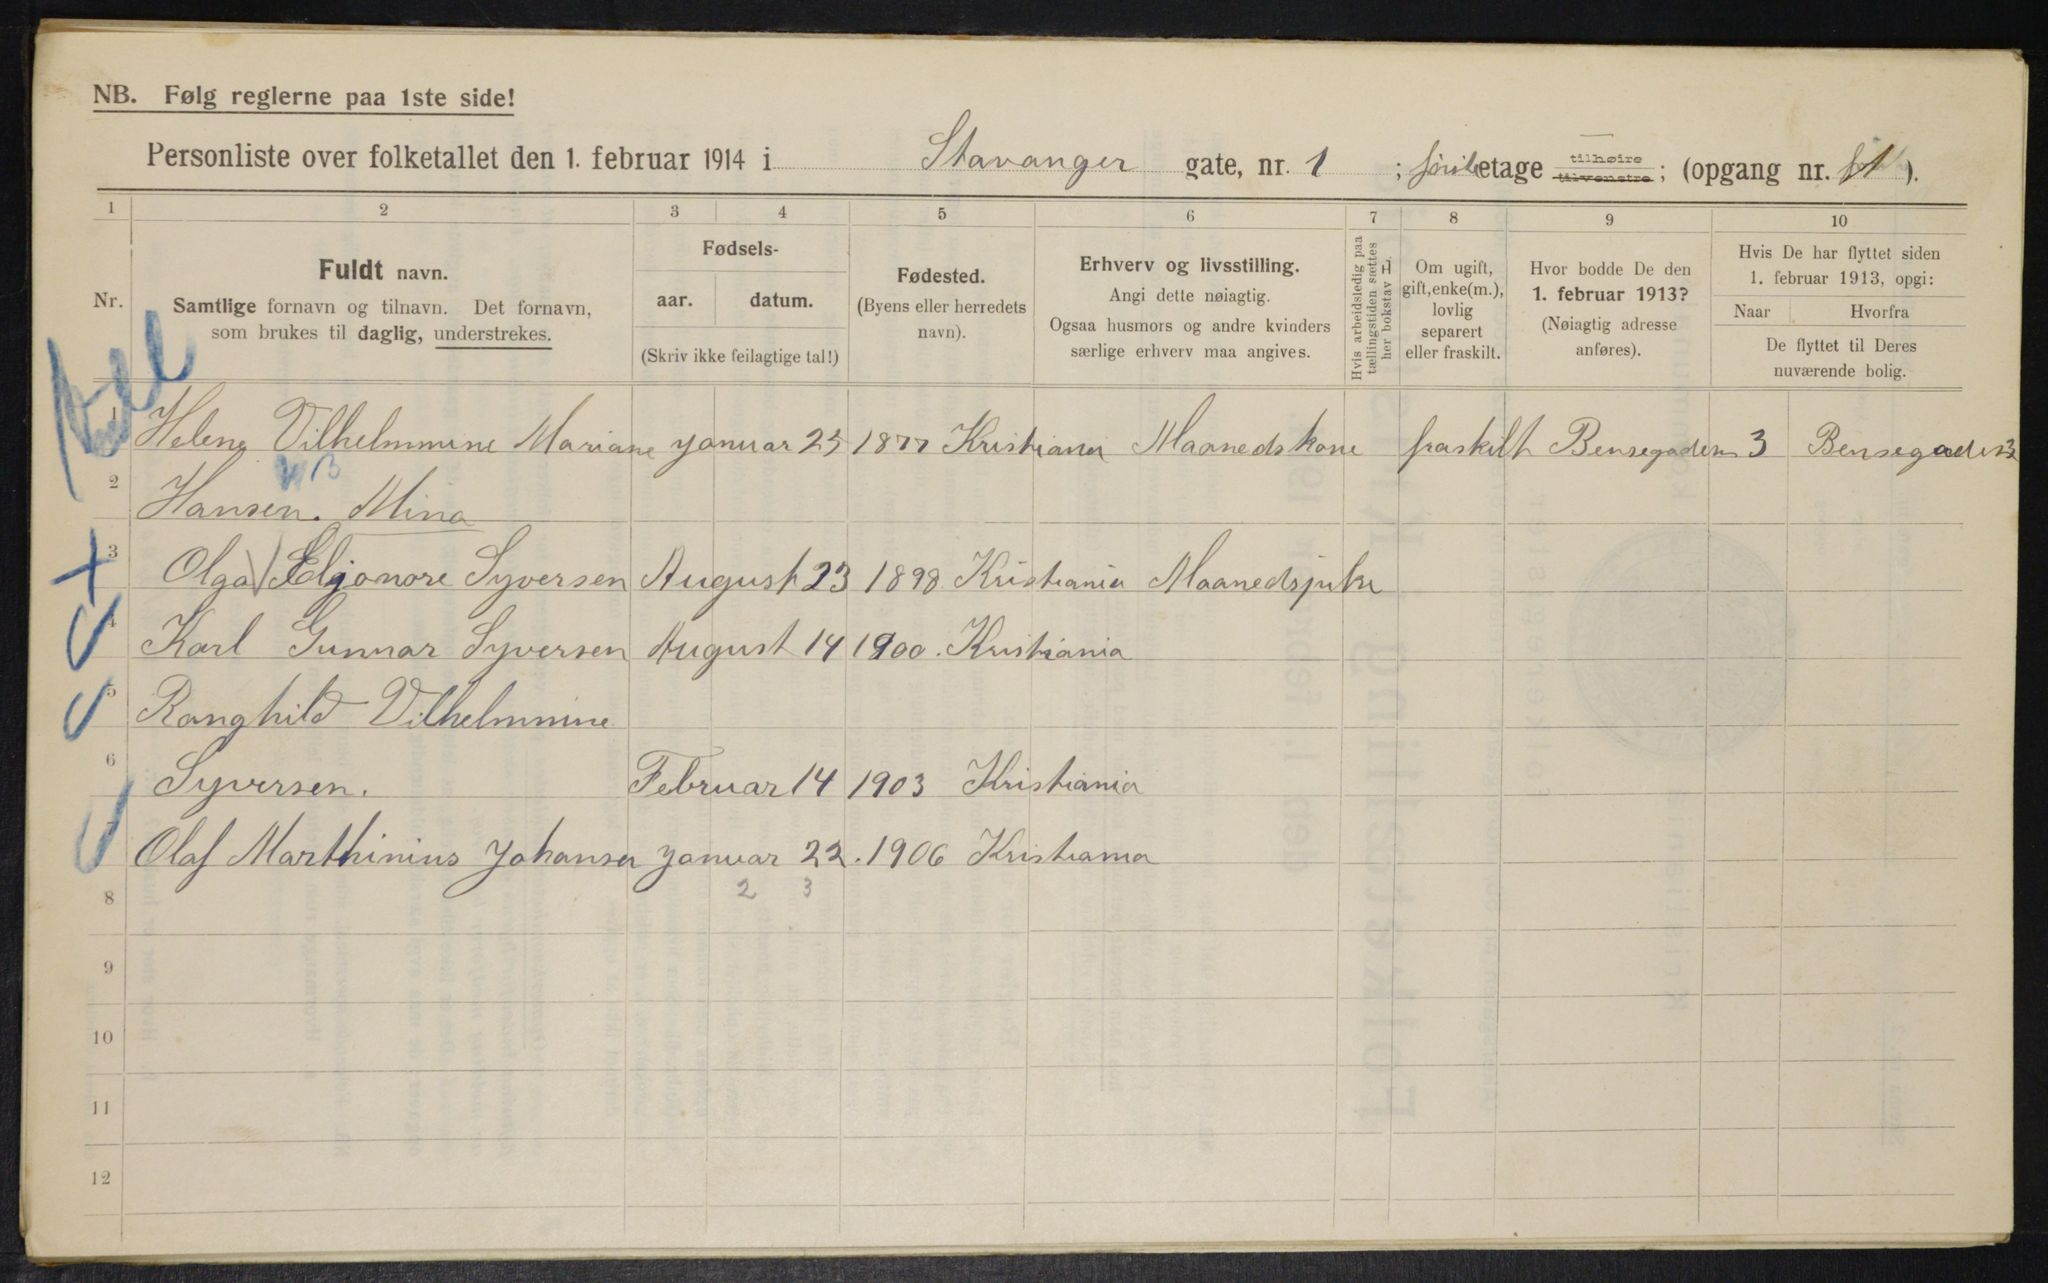 NB. Følg reglerne paa 1ste side!
Personliste over folketallet den 1. februar 1914 i Stavanger gate, nr. 1 ; etage tilhøire tilvenstre; (opgang nr. 1 ).
1 2 3 4 5 6 7 8 9 10
Nr.
Fuldt navn.
Samtlige fornavn og tilnavn. Det fornavn,
som brukes til daglig, understrekes.
Fødsels-
aar. datum.
(Skriv ikke feilagtige tal!)
Fødested.
(Byens eller herredets
navn).
Erhverv og livsstilling.
Angi dette nøiagtig.
Ogsaa husmors og andre kvinders
særlige erhverv maa angives.
Hvis arbeidsledig paa
tællingstiden sættes
her bokstav L
Om ugift,
gift, enke(m.),
lovlig
separert
eller fraskilt.
Hvor bodde De den
1. februar 1913?
(Nøiagtig adresse
anføres).
Hvis De har flyttet siden
1. februar 1913, opgi:
Naar Hvorfra
De flyttet til Deres
nuværende bolig.
1 Helene Vilhelmmine Mariane Januar 25 1877 Kristiania Maanedskone fraskilt Bensegaden 3 Bensegaden 3
2 Hansen. Mina
3 Olga Eljonore Syversen August 23 1898 Kristiania
4 Karl Gunnar Syversen August 14 1900. Kristiania
5 Ranghild Vilhelmmine
6 Syversen. Februar 14 1903 Kristiania
7 Olaf Marthinius Johansen Januar 22. 1906 Kristiania
2 3
8
9
10
11
12